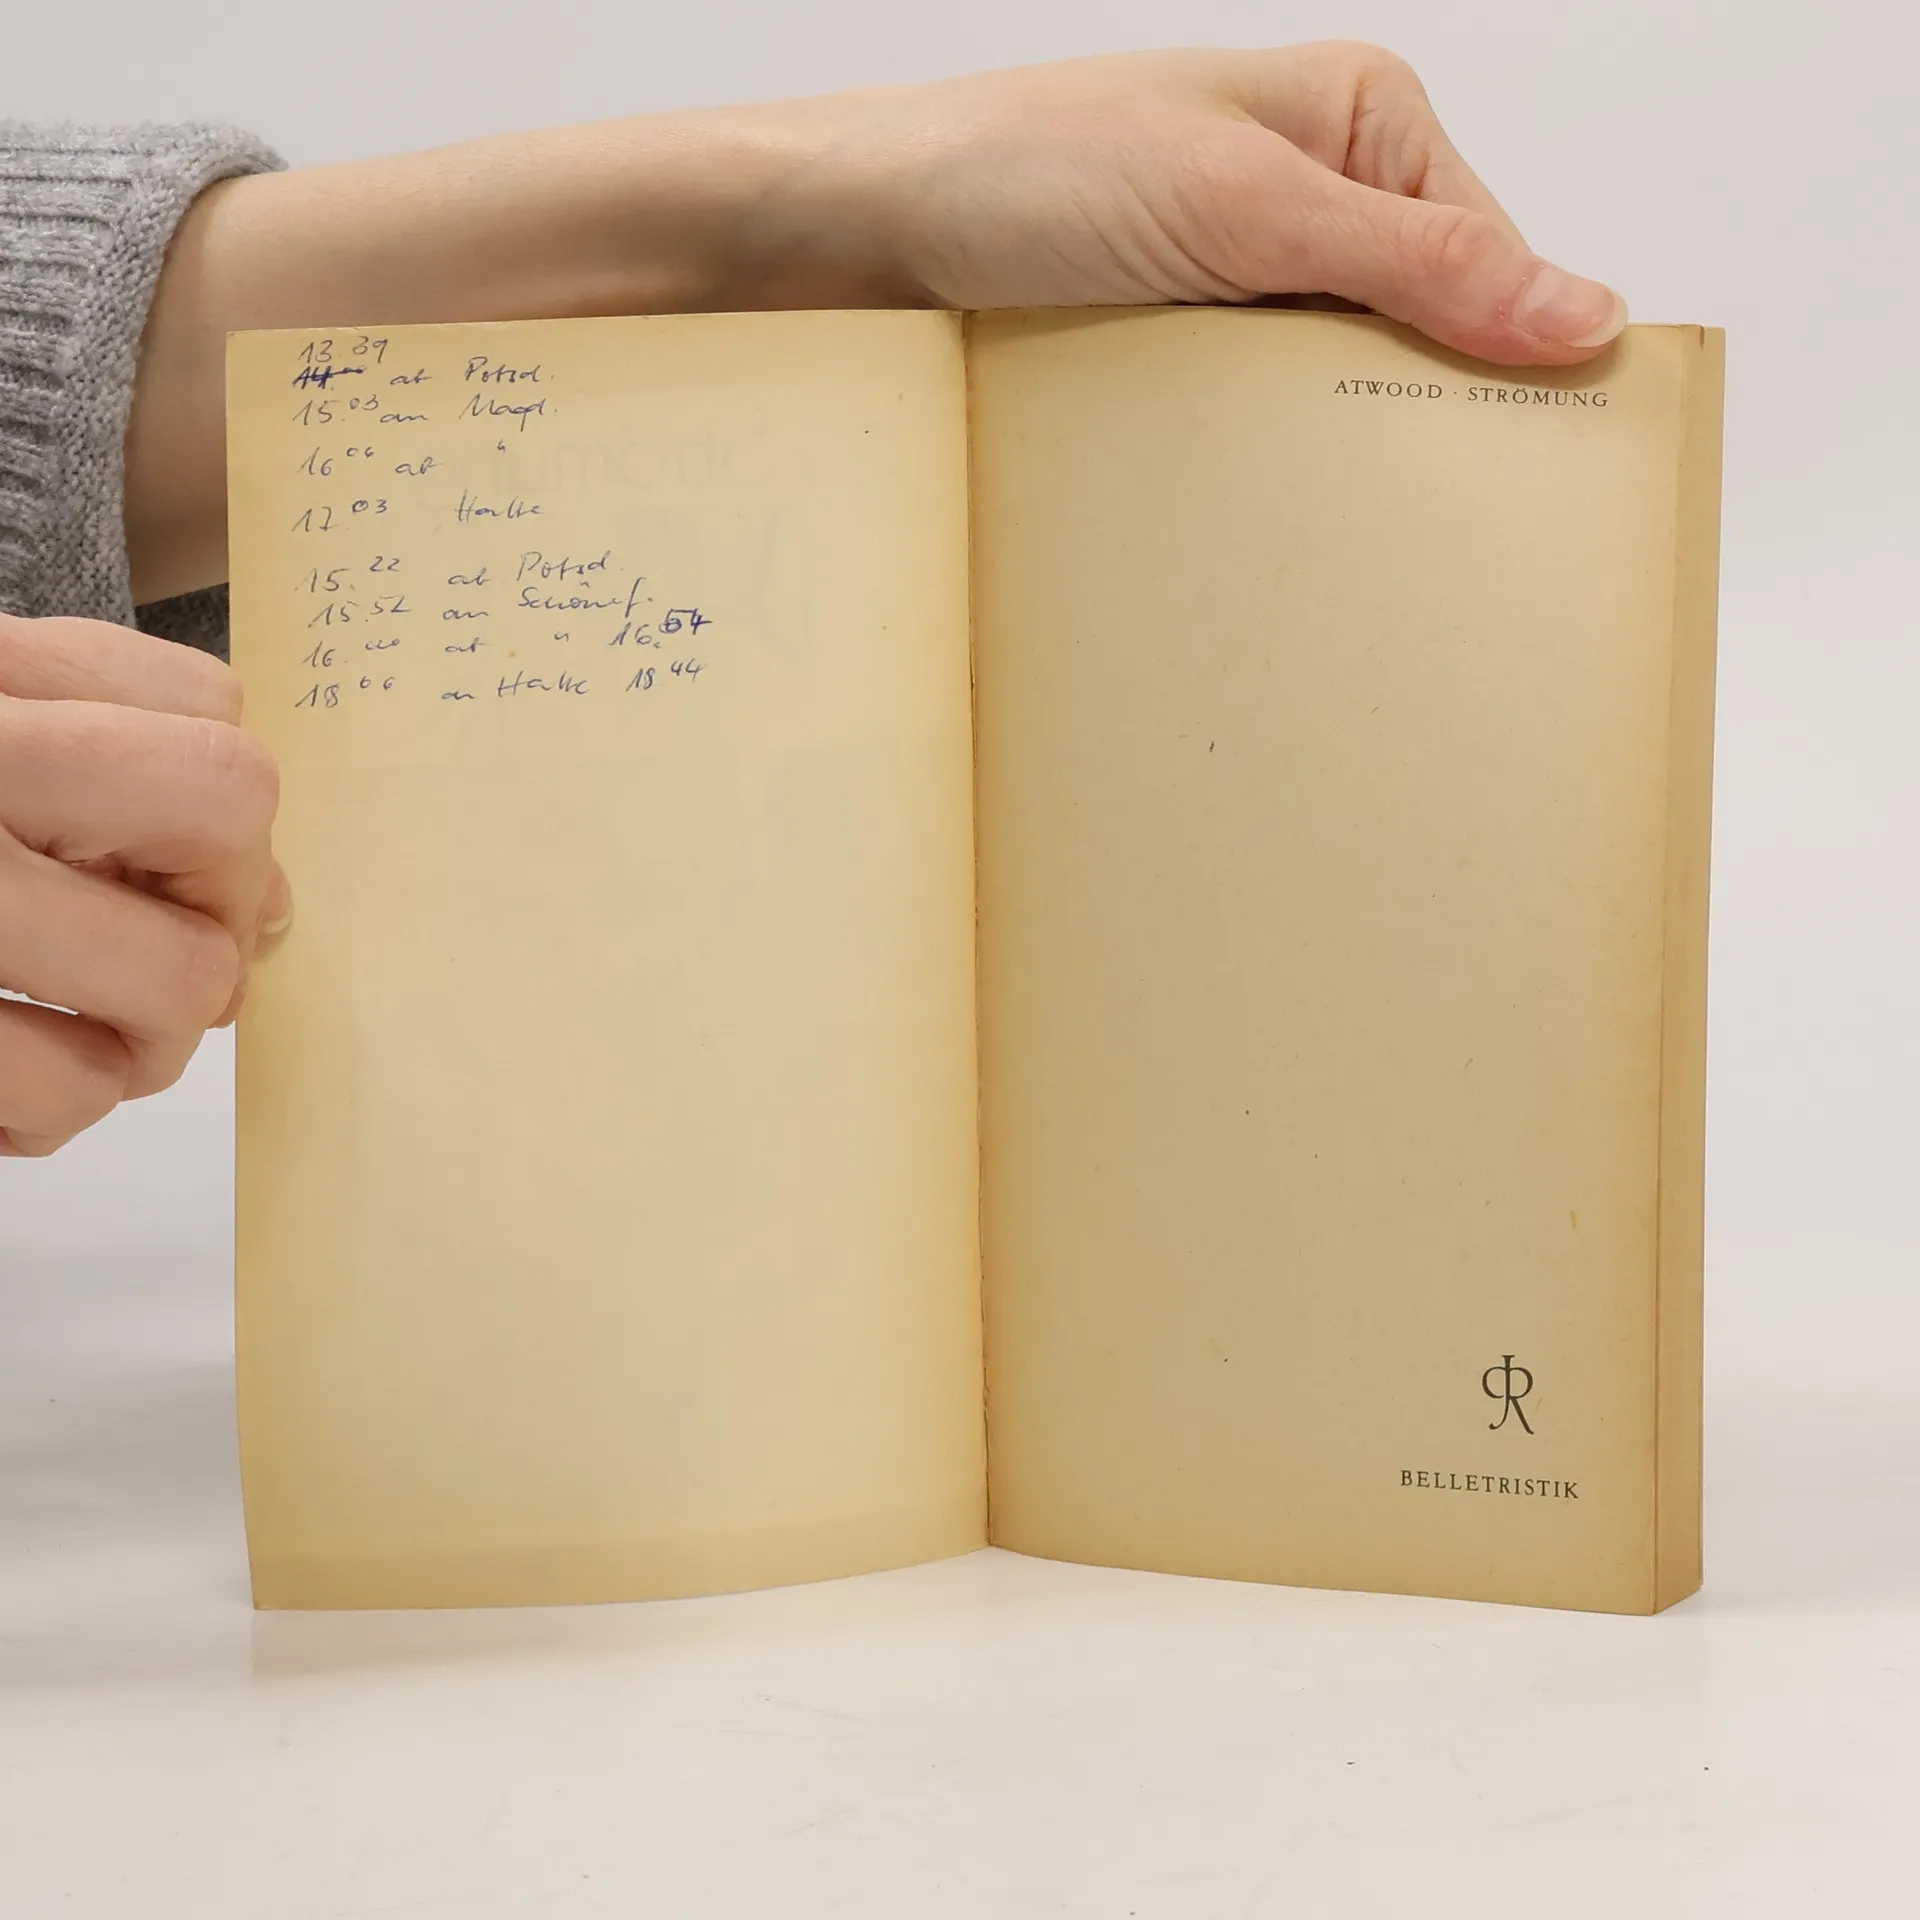 13.39
14.00 ab Potsd.
15.03 an Magd.
16 06 ab "
17 03 Halle
15.22 ab Potsd.
15.52 an Schönef.
16.00 ab " 16.54
18 06 an Halle 18 44
ATWOOD · STRÖMUNG
R
BELLETRISTIK